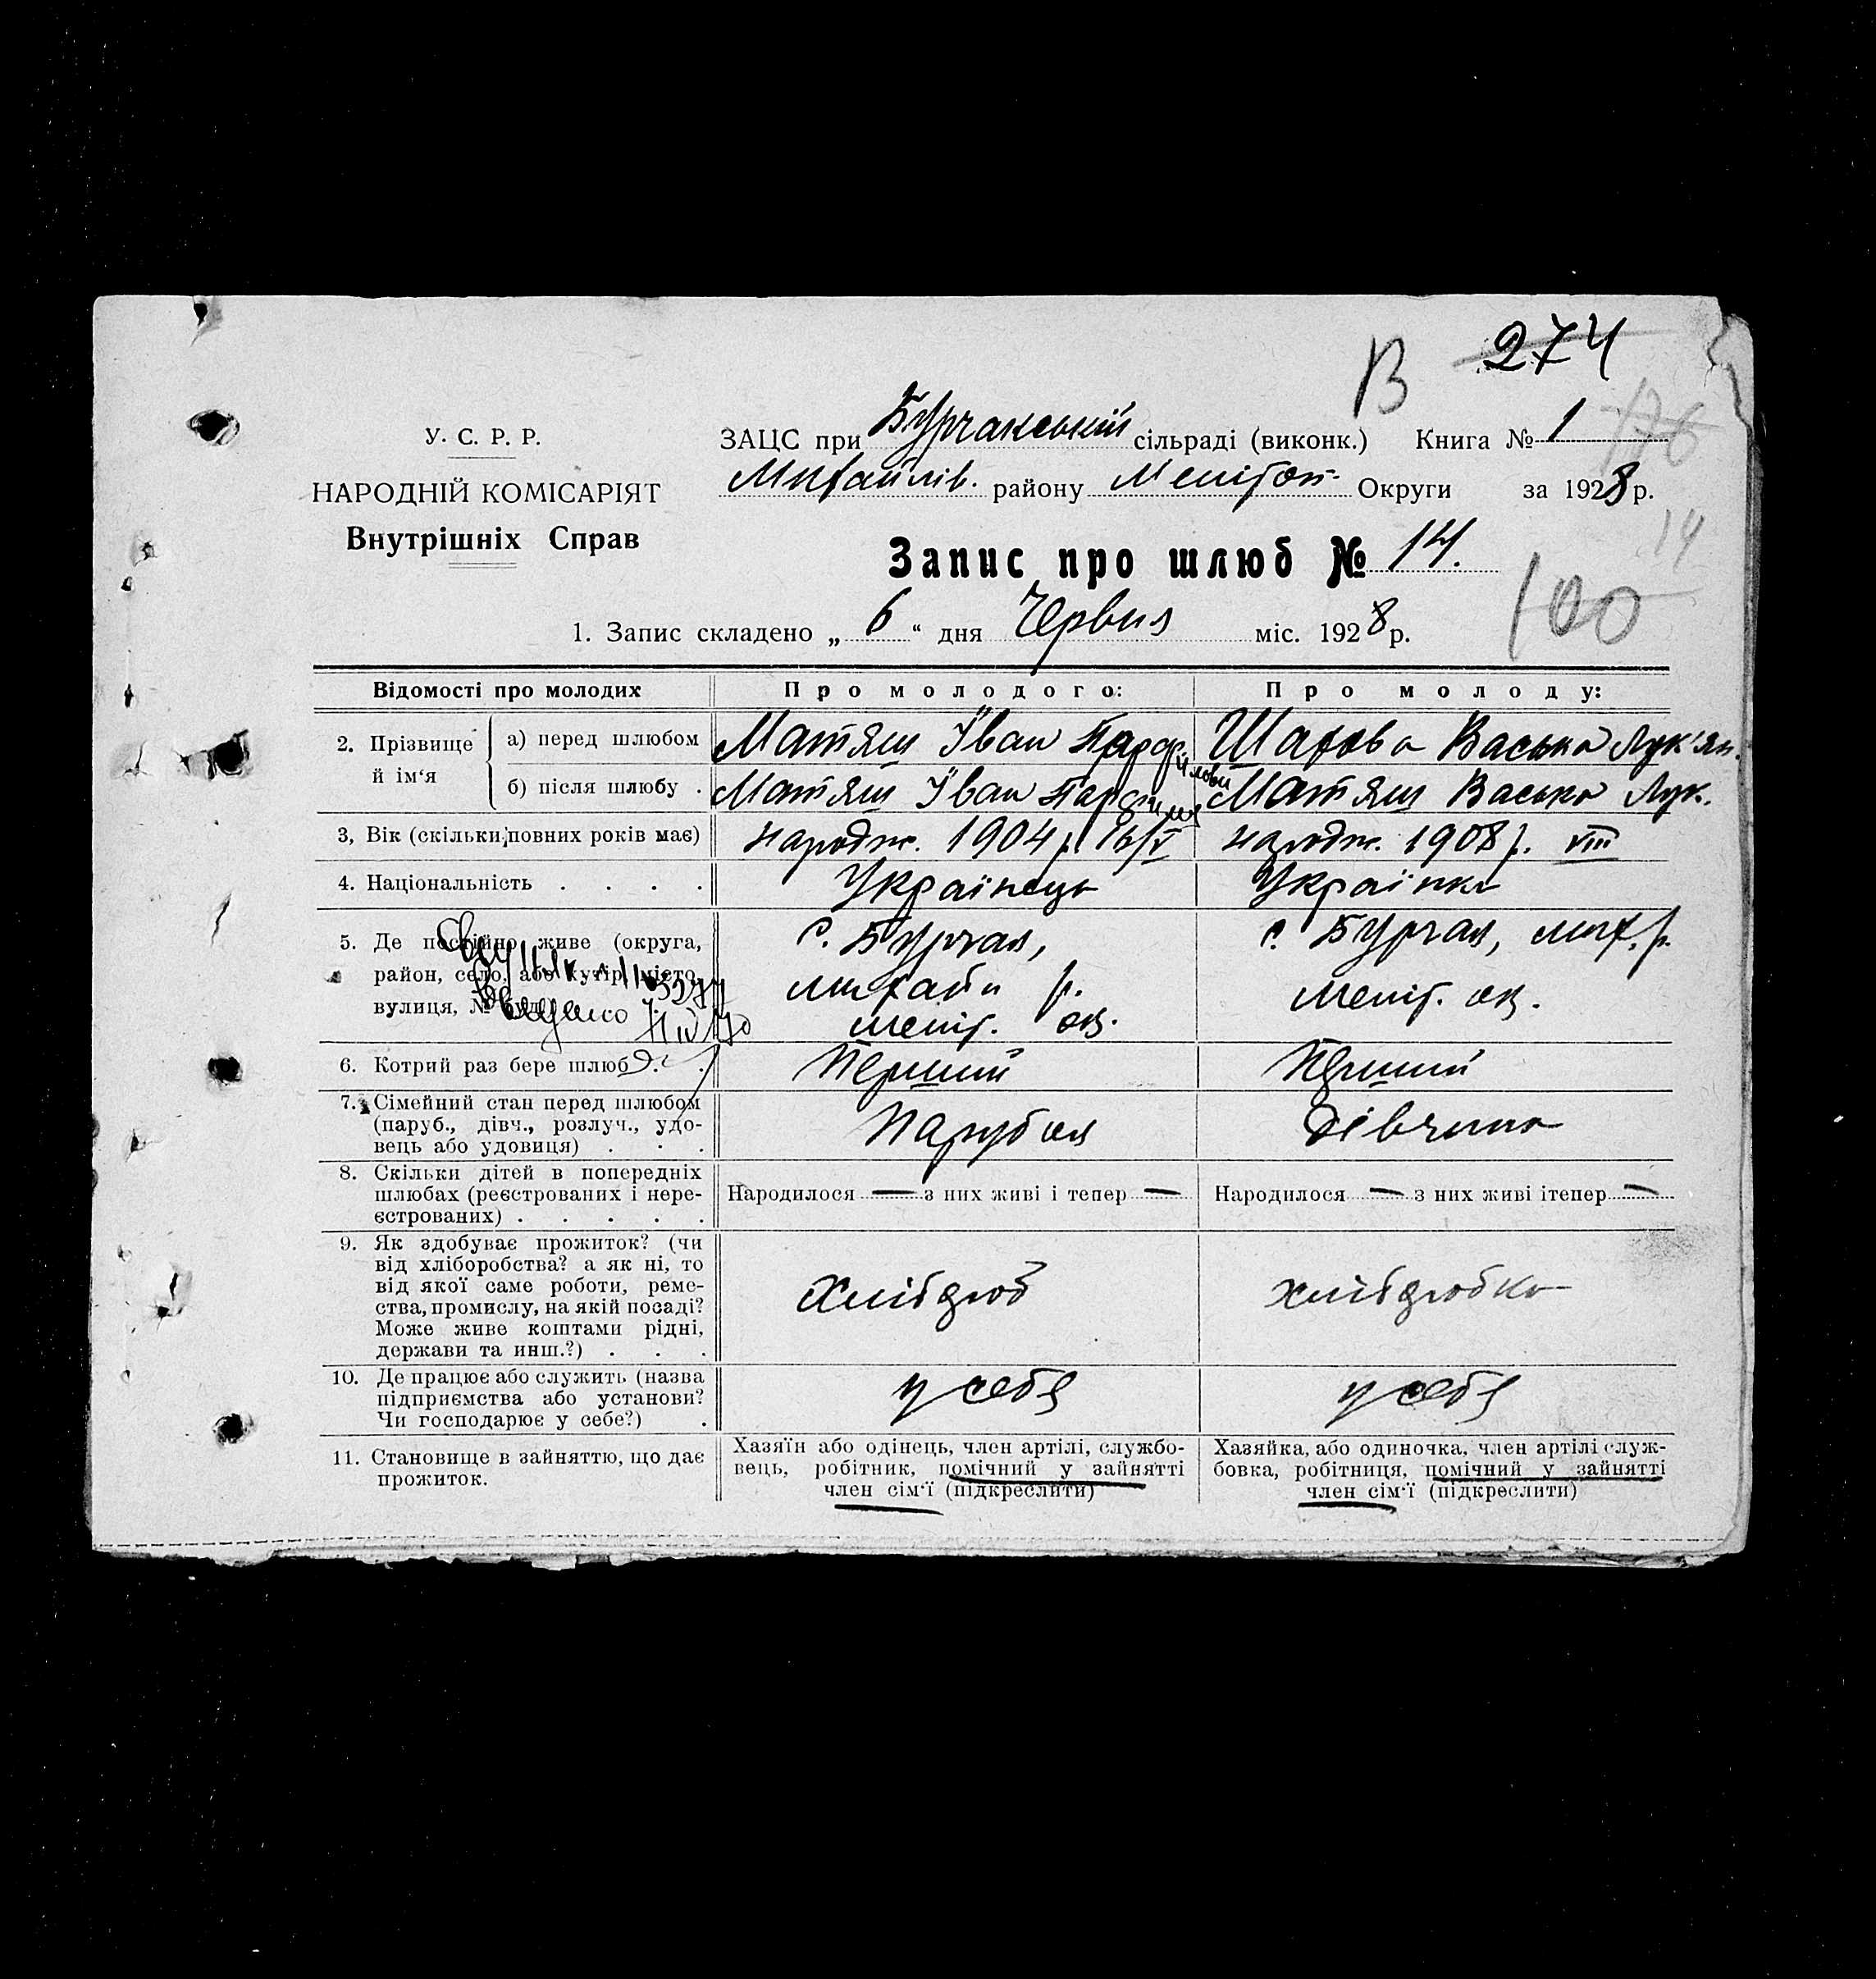 В 274
У. С. Р. Р.
НАРОДНІЙ КОМІСАРІЯТ
Внутрішніх Справ
ЗАЦС при Бурчакській сільраді (виконк.) Книга № 1 176
Михайлів. району Меліт. Округи за 1928 р.
14
Запис про шлюб № 14.
100
1. Запис складено „ 6 “ дня Червня міс. 1928 р.
Відомості про молодих Про молодого: Про молоду:
2. Прізвище й ім‘я
а) перед шлюбом Матяш Іван Парф. Шахова Васька Лук'ян.
б) після шлюбу . Матяш Іван Матяш Васька Лук.
3, Вік (скільки повних років має) народж. 1904 р. народж. 1908 р. VIII
4. Національність . . . . Українець Українка
5. Де постійно живе (округа,
район, село, або хутір, місто,
вулиця, № буд.)
с. Бурчак,
михайл р.
меліт. ок.
с. Бурчак, мих. р.
меліт. ок.
6. Котрий раз бере шлюб . . Перший Перший
7. Сімейний стан перед шлюбом
(паруб., дівч., розлуч., удо-
вець або удовиця) . . .
Парубок Дівчина
8. Скільки дітей в попередніх
шлюбах (реєстрованих і нере-
єстрованих) . . . . .
Народилося — з них живі і тепер — Народилося — з них живі ітепер —
9. Як здобуває прожиток? (чи
від хліборобства? а як ні, то
від якої саме роботи, реме-
ства, промислу, на якій посаді?
Може живе коштами рідні,
держави та инш.?) . . .
Хлібороб хліборобка
10. Де працює або служить (назва
підприємства або установи?
Чи господарює у себе?) .
у себе у себе
11. Становище в зайняттю, що дає
прожиток.
Хазяїн або одінець, член артілі, службо-
вець, робітник, помічний у зайнятті
член сім‘ї (підкреслити)
Хазяйка, або одиночка, член артілі служ-
бовка, робітниця, помічний у зайнятті
член сім‘ї (підкреслити)